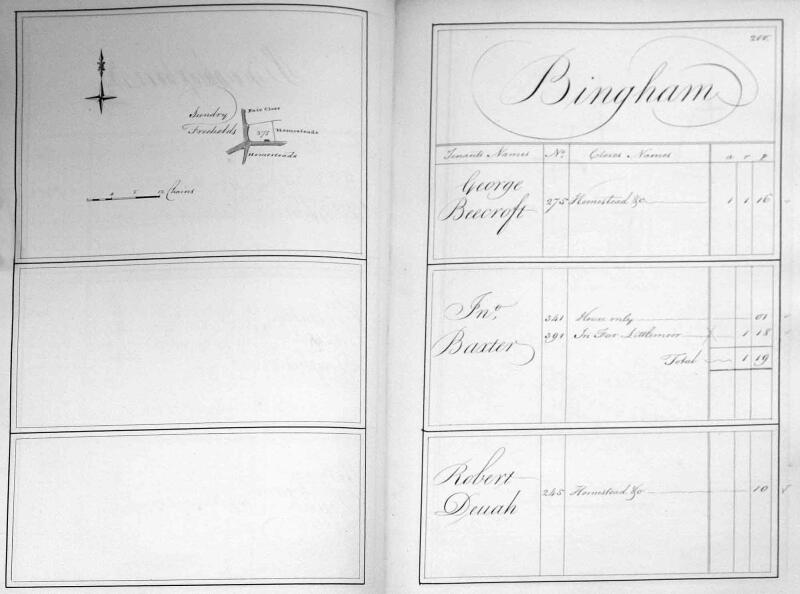 Fair Close
Sundry
Freeholds
275
Homesteads
Homesteads
4 8 12 Chains
Bingham
Tenants Names No. Closes Names a r p
George
Beecroft 275 Homestead &c 1 1 16
Jno.
Baxter
341 House only 01
391 In Far Littlemoor 1 18
Total 1 19
Robert
Deuah 245 Homestead &c 10